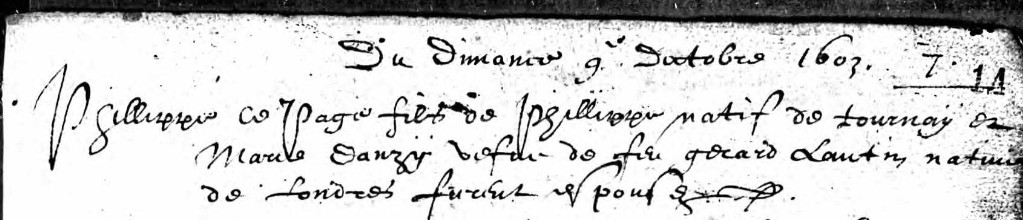 Du Dimance 9e Doctobre 1603. 7. 14
Phillippe le Page fils de Phillippe natif de tournay et
Marie Danzy vefue de feu gerard Lautin native
de Londres furent espousez